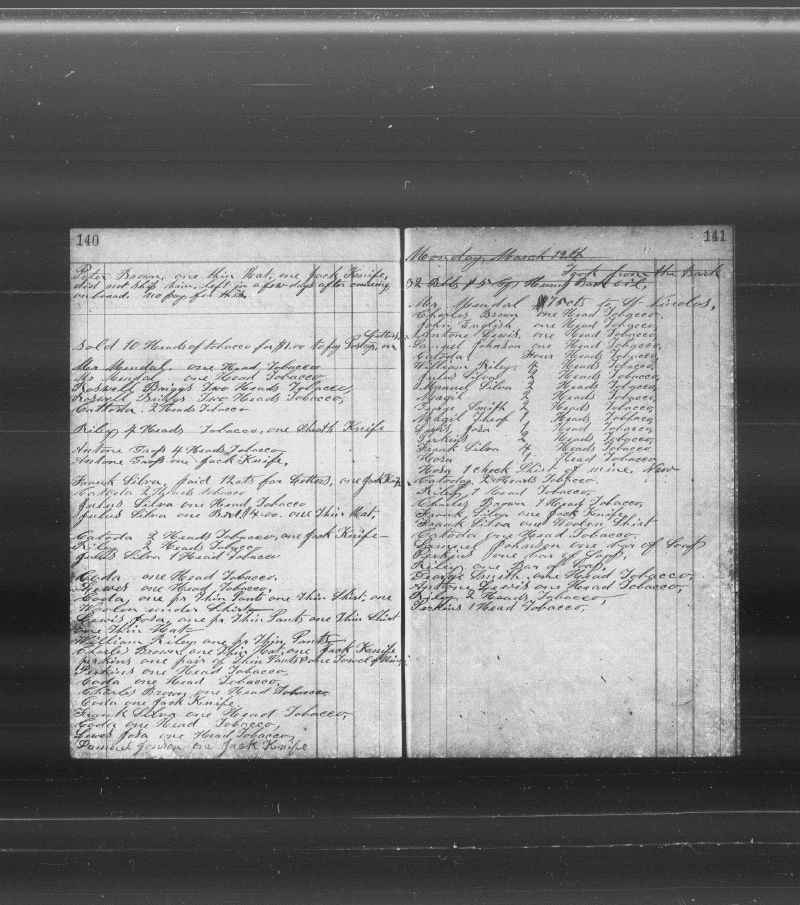 140
Peter Brown, one thin Hat, one Jack Knife,
did not ship him, left in a few days after coming
on board. no pay for this
Letters,
Sold 10 Heads of tobacco for $1.00 to pay Postage on
Mr Mendal, one Head Tobacco
Mr Mendal one Head Tobacco
Roswell Briggs Two Heads Tobacco,
Roswell Briggs Two Heads Tobacco,
Catoda. 2 Heads Tobacco
Riley 4 Heads Tobacco, one Sheath Knife
Antone Gross 4 Heads Tobacco
Antone Gross one Jack Knife,
Frank Silva, paid 12cts for one Jack Knife
Catoda 2 Heads tobacco
Julus Silva one Head Tobacco
Julus Silva one $4.00. one Thin Hat,
Catoda 2 Heads Tobacco, one Jack Knife
Riley 2 Heads Tobacco
Julus Silva 1 Head Tobacco
Coda one Head Tobacco.
Lewis one Head Tobacco,
Coda, one pr Thin Pants one Thin Shirt, one
Woolen under Shirt
Lewis Josa, one pr Thin Pants one Thin Shirt
one Thin Hat
William Riley one pr Thin Pants
Charles Brown, one Thin Hat, one Jack Knife
Perkins one pair of Thin Pants & one Towel of
Perkins one Head Tobacco,
Coda one Head Tobacco,
Charles Brown one Head Tobacco
Coda one Jack Knife,
Frank Silva one Head Tobacco,
Coda one Head Tobacco,
Lewis Josa one Head Tobacco,
Samuel Jonson one Jack Knife
141
Monday, March 12th
Took from the Bark
32 Bbls &5 Hump Back oil,
Mr Mendal 75cts to St Nicolas,
Charles Brown one Head Tobacco,
John English one Head Tobacco,
Antone Lewis, one Head Tobacco,
Samuel Johnson one Head Tobacco,
Catoda Four Heads Tobacco,
William Riley 4 Heads Tobacco,
Julus Silva 2 Heads Tobacco,
Manuel Silva 2 Heads Tobacco,
Magil 2 Heads Tobacco,
George Smith 2 Heads Tobacco,
Magil 1 Head Tobacco,
Josa 1 Head Tobacco,
Perkins 2 Heads Tobacco,
Frank Silva 4 Heads Tobacco,
Hosa 1 Head Tobacco
Hosa 1 check Shirt of mine, New
Catoday 2 Heads Tobacco.
Riley 1 Head Tobacco,
Charles Brown 1 Head Tobacco,
Frank Silva one Jack Knife,
Frank Silva one Woolen Shirt
Catoda one Head Tobacco.
Samuel Johnson one bar of Soap
Perkins one bar of Soap,
Riley one Bar of Soap,
George Smith one Head Tobacco,
Antone Lewis one Head Tobacco,
Riley 2 Heads Tobacco,
Perkins 1 Head Tobacco,